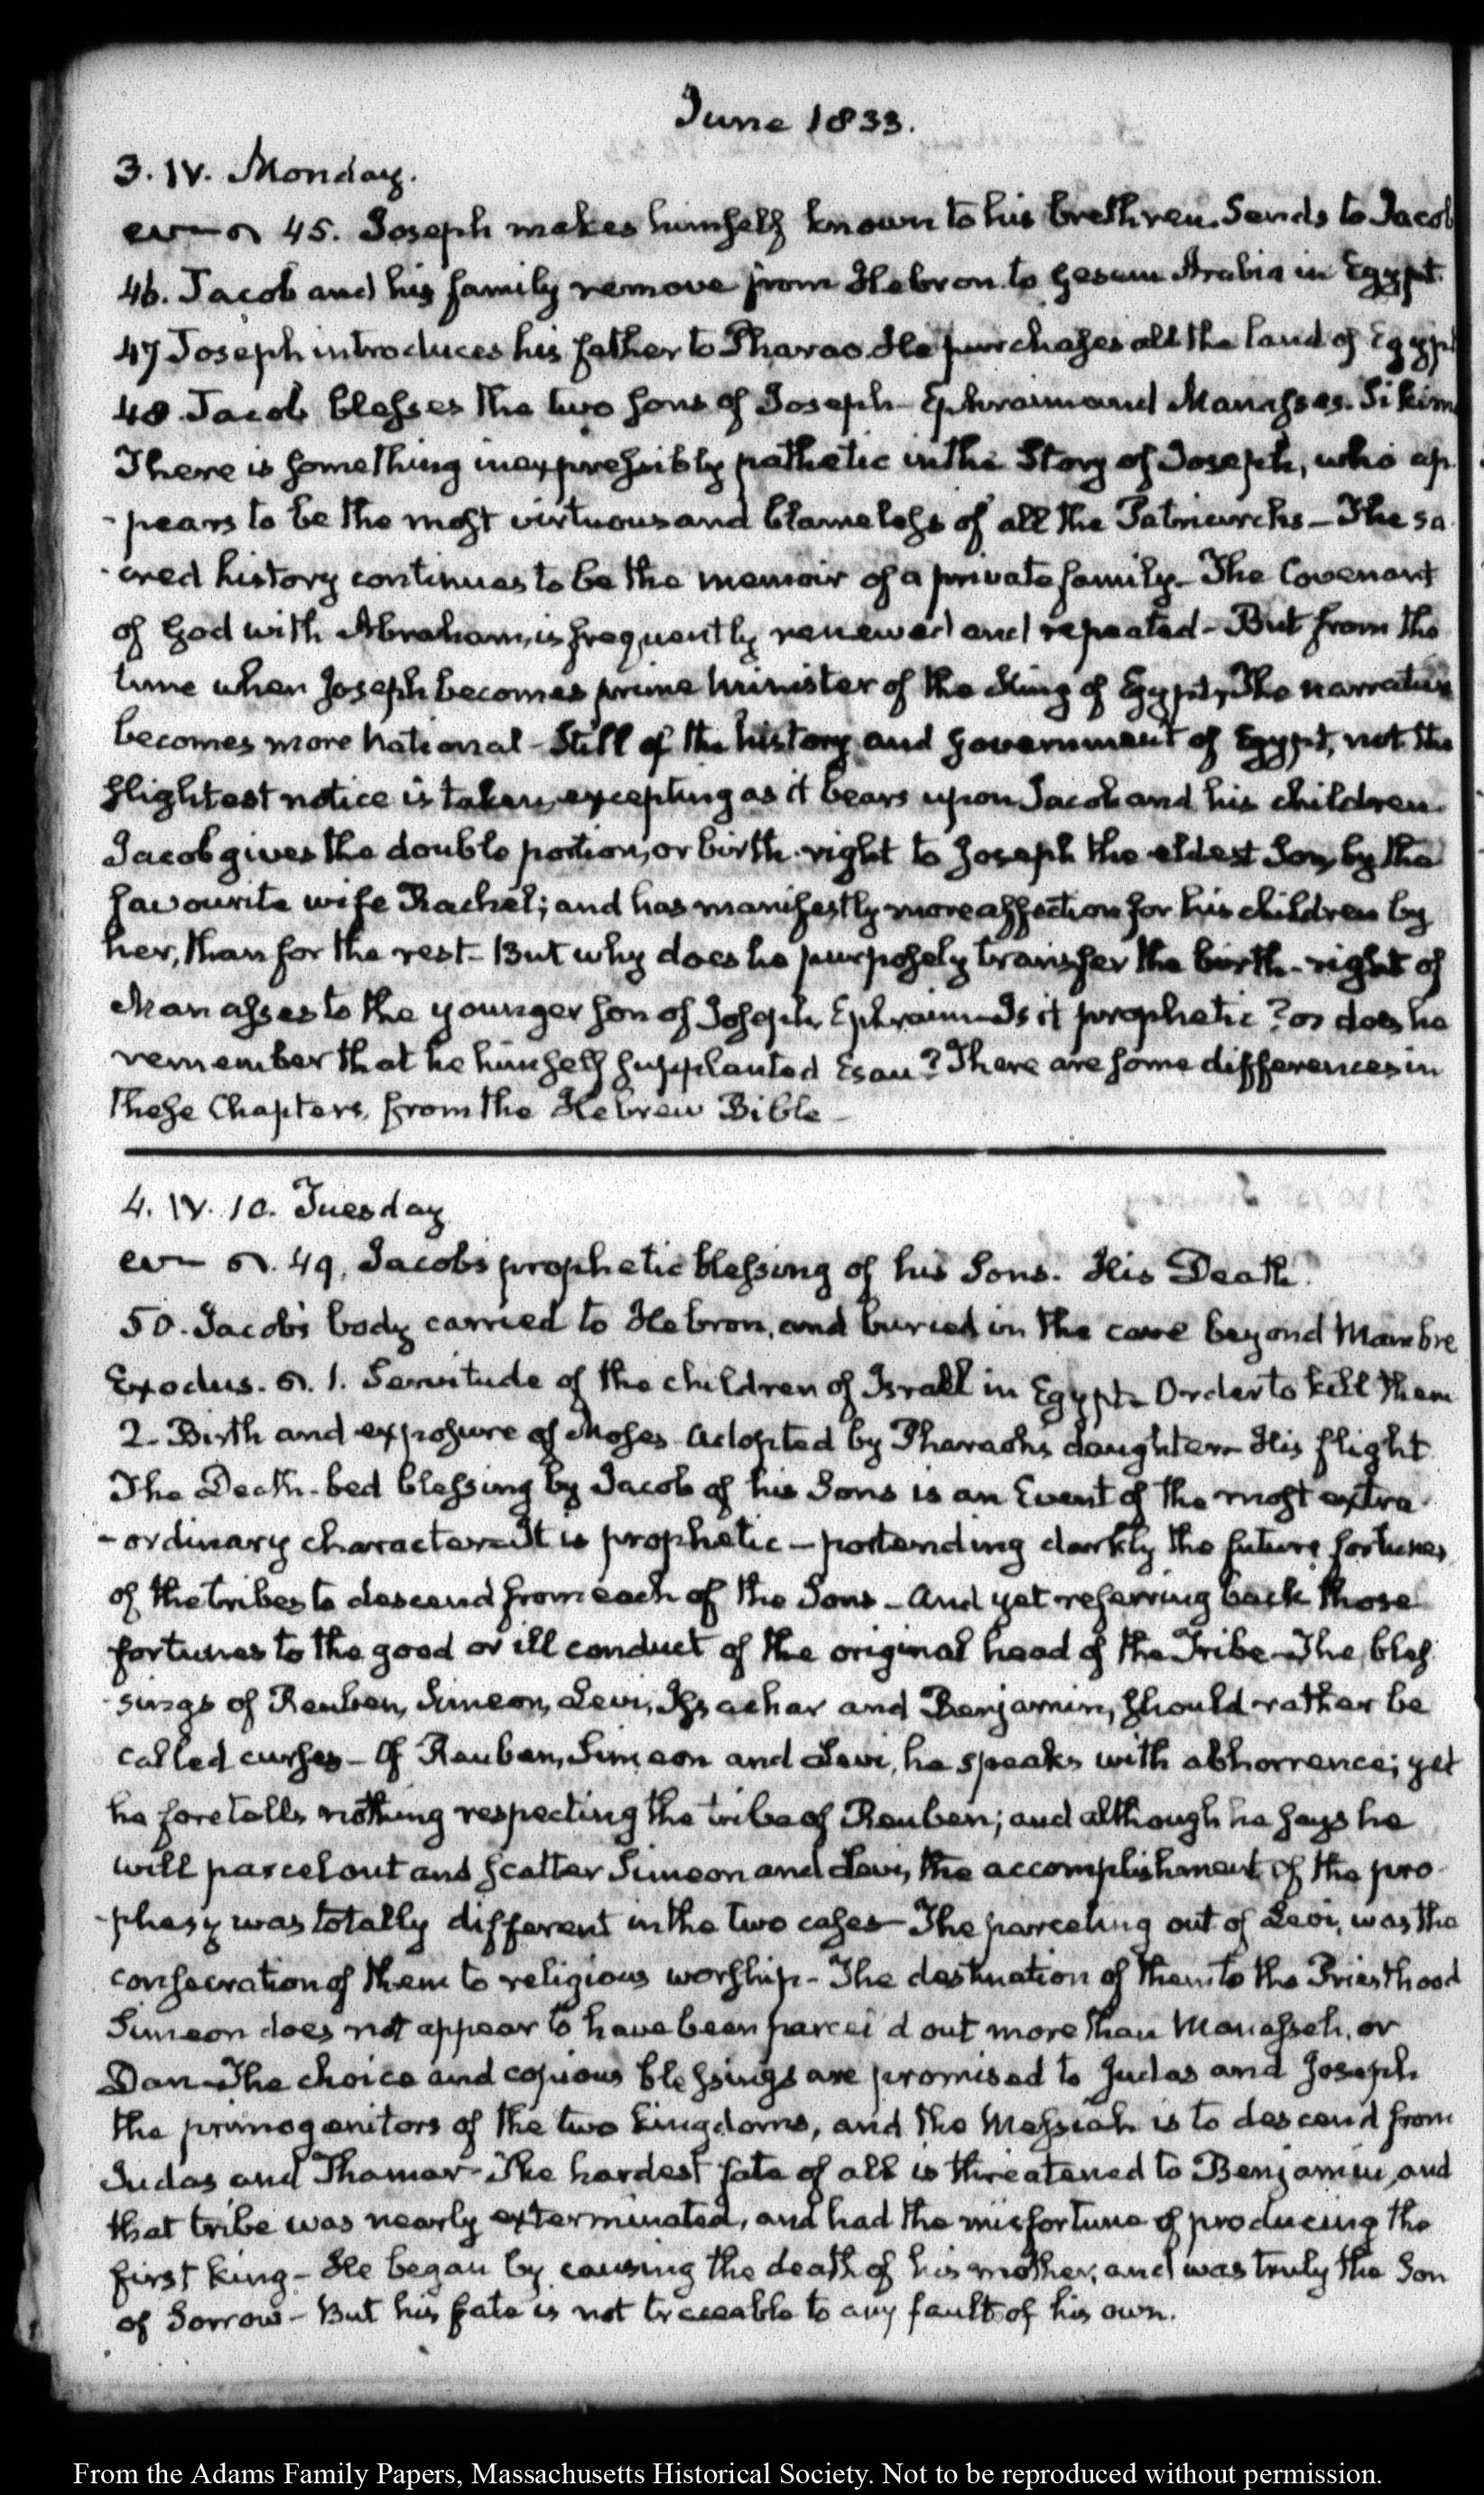 June 1833.
3. IV. Monday.
45. Joseph makes himself known to his brethren. Sends to Jacob
46. Jacob and his family remove from Hebron to Gesem Arabia in Egypt.
47 Joseph introduces his father to Pharao. He purchases all the land of Egypt
48. Jacob blesses the two sons of Joseph- Ephraim and Manasses. Sikim
There is something inexpressibly pathetic in the Story of Joseph, who ap
-pears to be the most virtuous and blameless of all the Patriarchs- The sa
-cred history continues to be the memoir of a private family- The Covenant
of God with Abraham, is frequently renewed and repeated- But from the
time when Joseph becomes prime minister of the King of Egypt, The narrative
becomes more national- Still of the history and Government of Egypt, not the
slightest notice is taken, excepting as it bears upon Jacob and his children.
Jacob gives the double portion, or birth-right to Joseph the eldest Son, by the
favourite wife Rachel; and has manifestly more affection for his children by
her, than for the rest- But why does he purposely transfer the birth-right of
Manasses to the younger son of Joseph, Ephraim- Is it prophetic? or does he
remember that he himself supplanted Esau? There are some differences in
these Chapters, from the Hebrew Bible-
4. IV. 10. Tuesday
49. Jacob's prophetic blessing of his Sons. His Death.
50. Jacob's body carried to Hebron, and buried in the cave beyond Mambre
Exodus. 1. Servitude of the children of Israel in Egypt- Order to kill them
2- Birth and exposure of Moses- adopted by Pharaoh's daughter- His flight
The Death-bed blessing by Jacob of his Sons is an Event of the most extra
-ordinary character- It is prophetic- portending darkly the future fortunes
of the tribes to descend from each of the Sons- And yet referring back those
fortunes to the good or ill conduct of the original head of the Tribe- The bles
-sings of Reuben, Simeon, Levi, Issachar and Benjamin, should rather be
called curses- Of Reuben, Simeon and Levi, he speaks with abhorrence; yet
he foretells nothing respecting the tribe of Reuben; and although he says he
will parcel out and scatter Simeon and Levi, the accomplishment of the pro
-phesy was totally different in the two cases- The parceling out of Levi, was the
consecration of them to religious worship- The destination of them to the Priesthood
Simeon does not appear to have been parcel'd out more than Manasseh, or
Dan- The choice and copious blessings are promised to Judas and Joseph
the primogenitors of the two kingdoms, and the Messiah is to descend from
Judas and Thamar- The hardest fate of all is threatened to Benjamin, and
that tribe was nearly exterminated, and had the misfortune of producing the
first king- He began by causing the death of his mother, and was truly the Son
of Sorrow- But his fate is not traceable to any fault of his own.
From the Adams Family Papers, Massachusetts Historical Society. Not to be reproduced without permission.